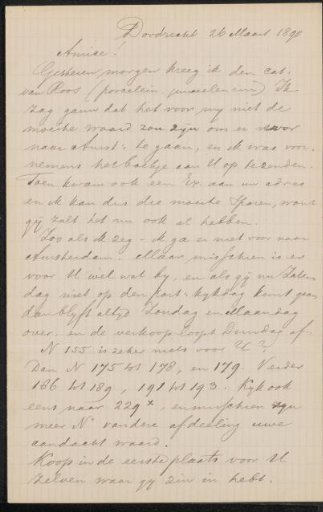 Dordrecht 26 Maart 1890
Amice!
Gisteren morgen kreeg ik den cat.
van Roos (porcelein, juweelen enz) Ik
zag gauw dat het voor mij niet de
moeite waard zou zijn om er voor
naar Amst: te gaan, en ik was voor-
nemens het boekje aan U op te zenden
Toen kwam ook een Ex. aan uw adres
en ik kan dus die moeite sparen, want
gij zult het nu ook al hebben.
Zoo als ik zeg - ik ga er niet voor naar
Amsterdam. Maar misschien is er
voor U wel wat by, en als gij nu Zater
dag niet op den part: kykdag komt gaan
dan blyft altyd Zondag en Maandag
over. en de verkoop loopt Dinsdag af.
N 155 is zeker niets voor U?
Dan N 175 tot 178, en 179. Verder
186 tot 189, 191 tot 193. Kyk ook
eens naar 229*, en misschien zyn
meer N van dere afdeeling uwe
aandacht waard.
Koop in de eerste plaats voor U
zelven waar gij zin in hebt.